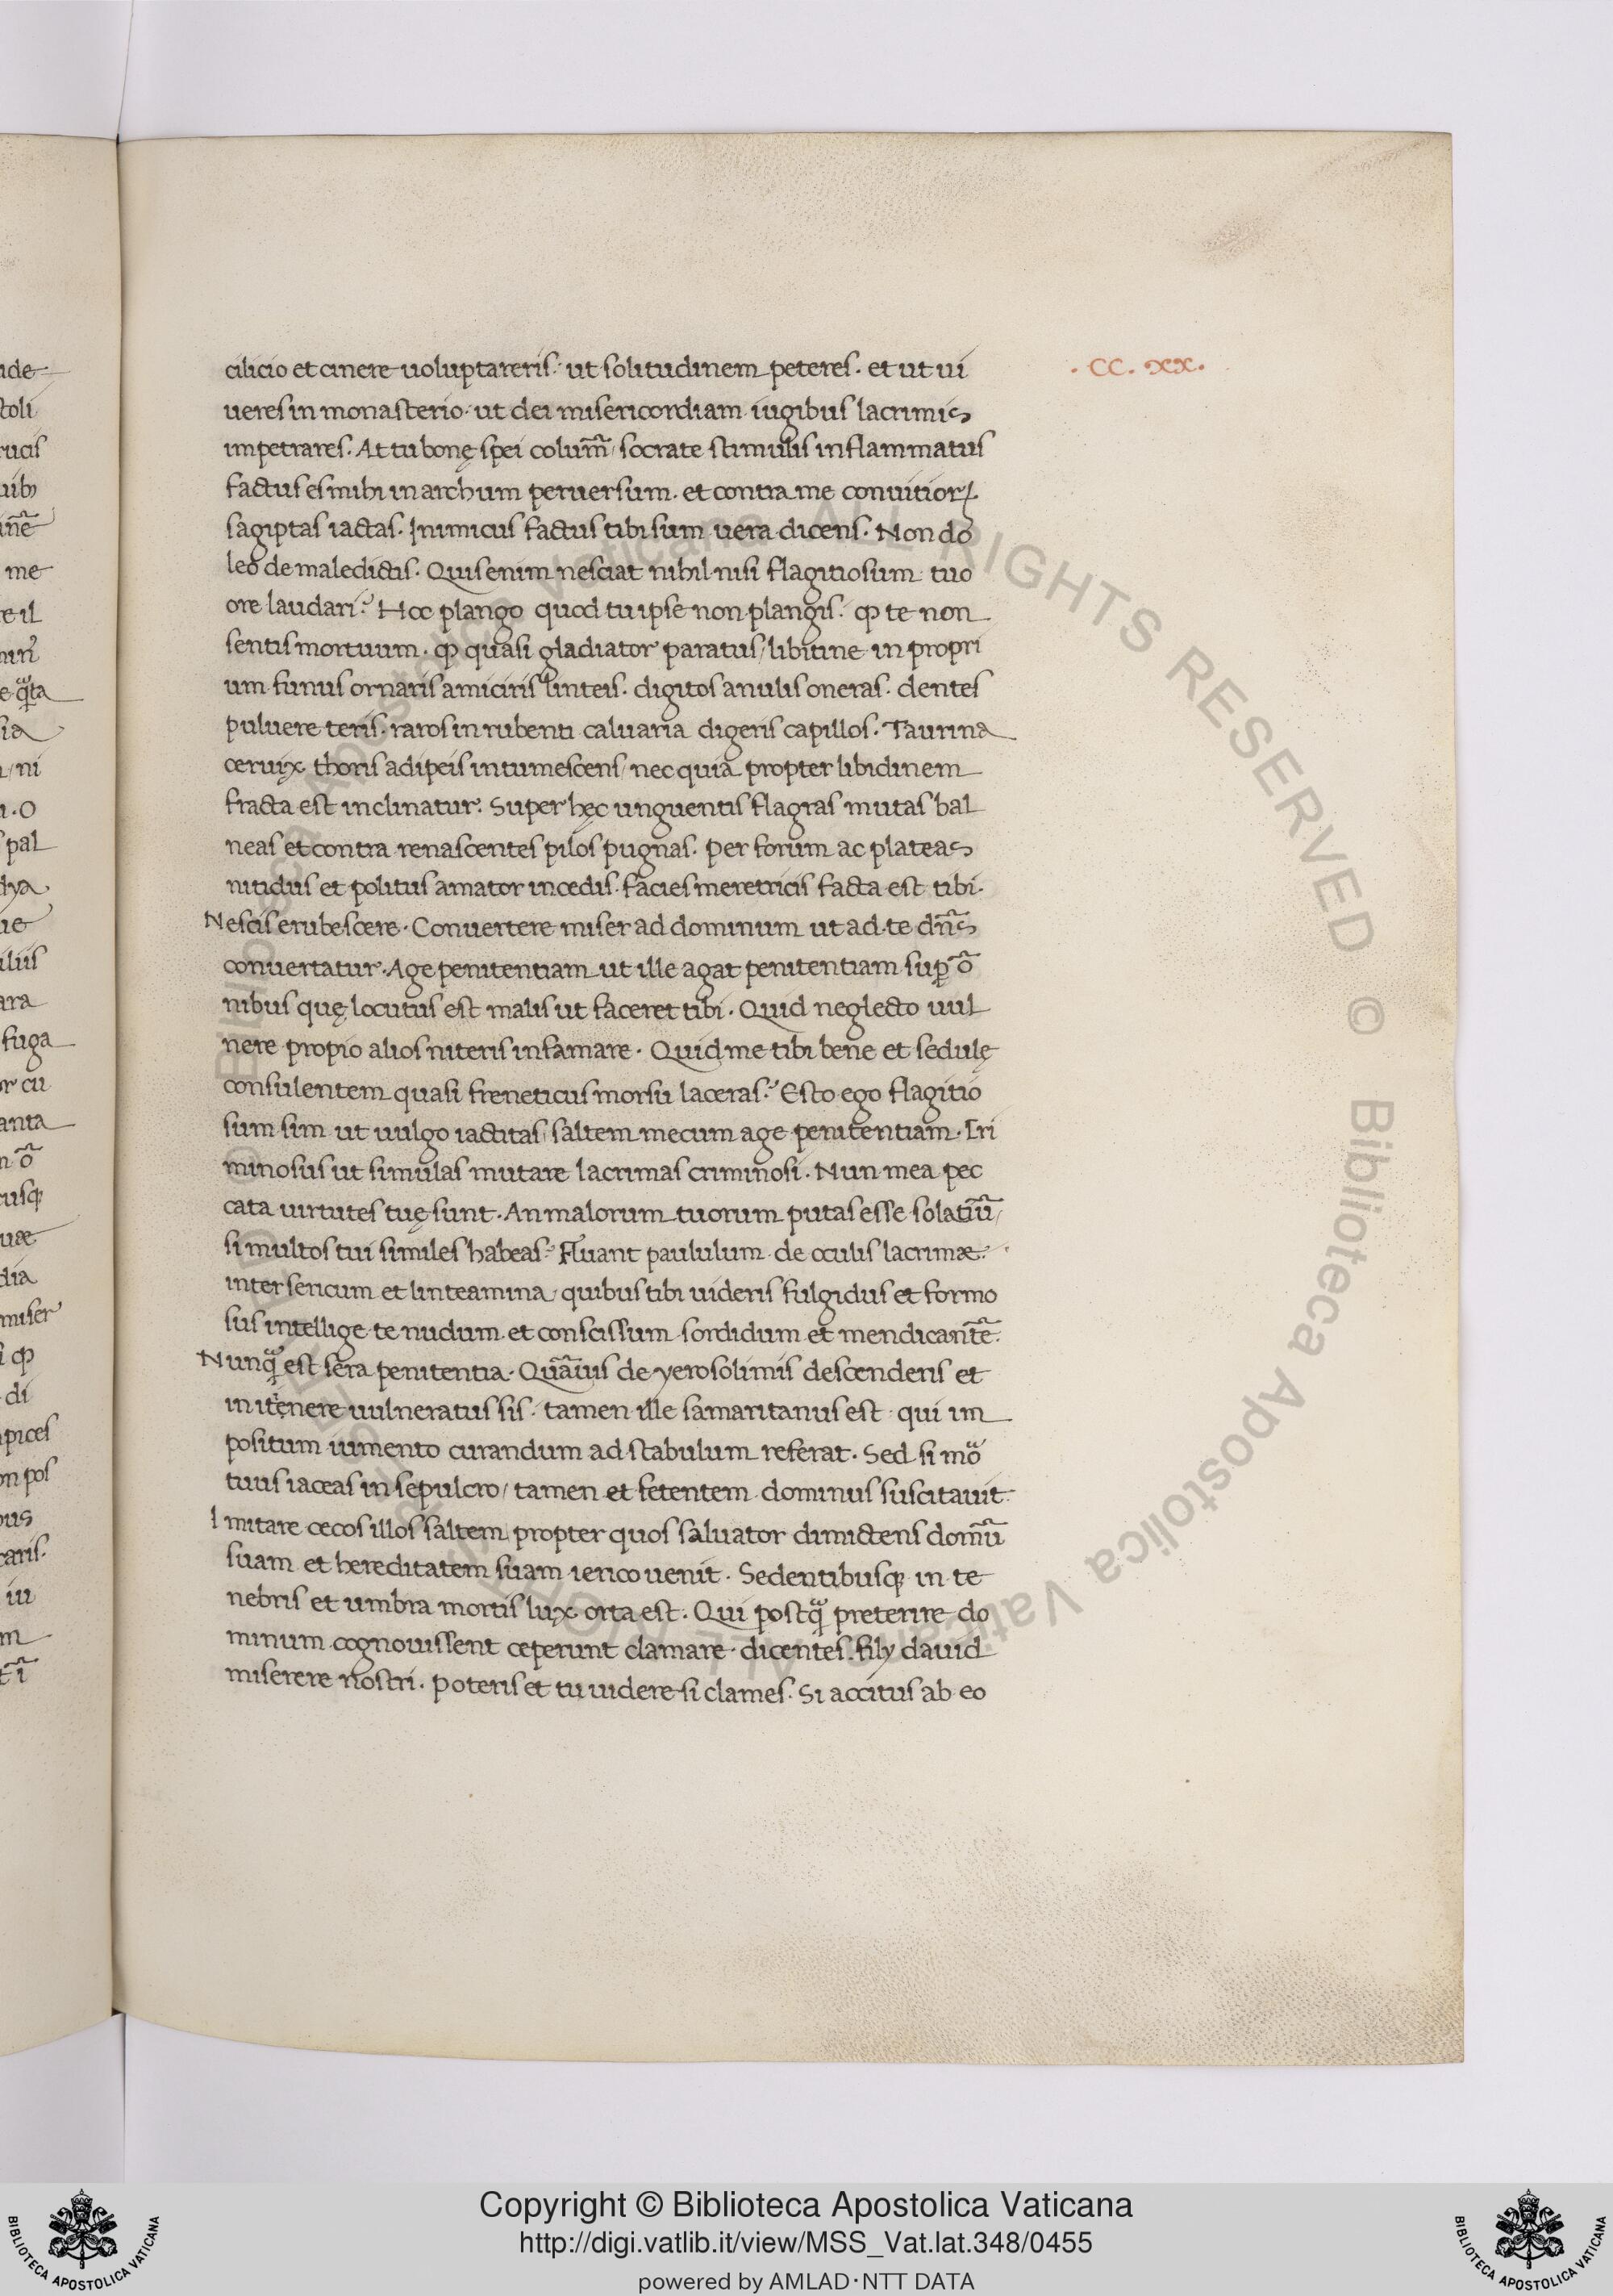 cilicio et cinere uoluptareris. ut solitudinem peteres. et ut ui
ueres in monasterio. ut dei misericordiam iugibus lacrimis
impetrares. At tu bonę spei colum̄ / socrate stimulis inflammatus
factus es mihi in archum peruersum. et contra me conuitioꝝ
sagiptas iactas. Inimicus factus tibi sum uera dicens. Non do
leo de maledictis. Quis enim nesciat nihil nisi flagitiosum tuo
ore laudari? Hoc plango quod tu ipse non plangis. ꝙ te non
sentis mortuum. ꝙ quasi gladiator paratus / libitine in propri
um funus ornaris amiciris linteis. digitos anulis oneras. dentes
puluere teris. raros in rubenti caluaria digeris capillos. Taurina
ceruix thoris adipeis intumescens / nec quia propter libidinem
fracta est inclinatur. Super hęc unguentis flagras mutas bal
neas et contra renascentes pilos pugnas. per forum ac plateas
nitidus et politus amator incedis. facies meretricis facta est tibi.
Nescis erubescere. Conuertere miser ad dominum ut ad te dn̄s
conuertatur. Age penitentiam ut ille agat penitentiam suꝑ ō
nibus quę locutus est malis ut faceret tibi. Quid neglecto uul
nere propio alios niteris infamare. Quid me tibi bene et sedulę
consulentem quasi freneticus morsu laceras? Esto ego flagitio
sum sim ut uulgo iactitas / saltem mecum age penitentiam. Cri
minosus ut simulas mutare lacrimas criminosi. Nun mea pec
cata uirtutes tuę sunt. An malorum tuorum putas esse solatiū /
si multos tui similes habeas? Fluant paululum de oculis lacrimæ.
inter sericum et linteamina / quibus tibi uideris fulgidus et formo
sus intellige te nudum et conscissum sordidum et mendicantē.
Nunꝙ̃ est sera penitentia. Quāuis de yerosolimis descenderis et
in itenere uulneratus sis. tamen ille samaritanus est qui im
positum iumento curandum ad stabulum referat. Sed si mo
tuus iaceas in sepulcro / tamen et fetentem dominus suscitauit.
Imitare cecos illos saltem propter quos saluator dimictens domū
suam et hereditatem suam ierico uenit. Sedentibusꝙ in te
nebris et umbra mortis lux orta est. Qui postꝙ̃ preterire do
minum cognouissent ceperunt clamare. dicentes. fily dauid
miserere nostri. poteris et tu uidere si clames. Si accitus ab eo
. CC. XX.
Copyright © Biblioteca Apostolica Vaticana
http://digi.vatlib.it/view/MSS_Vat.lat.348/0455
powered by AMLAD·NTT DATA